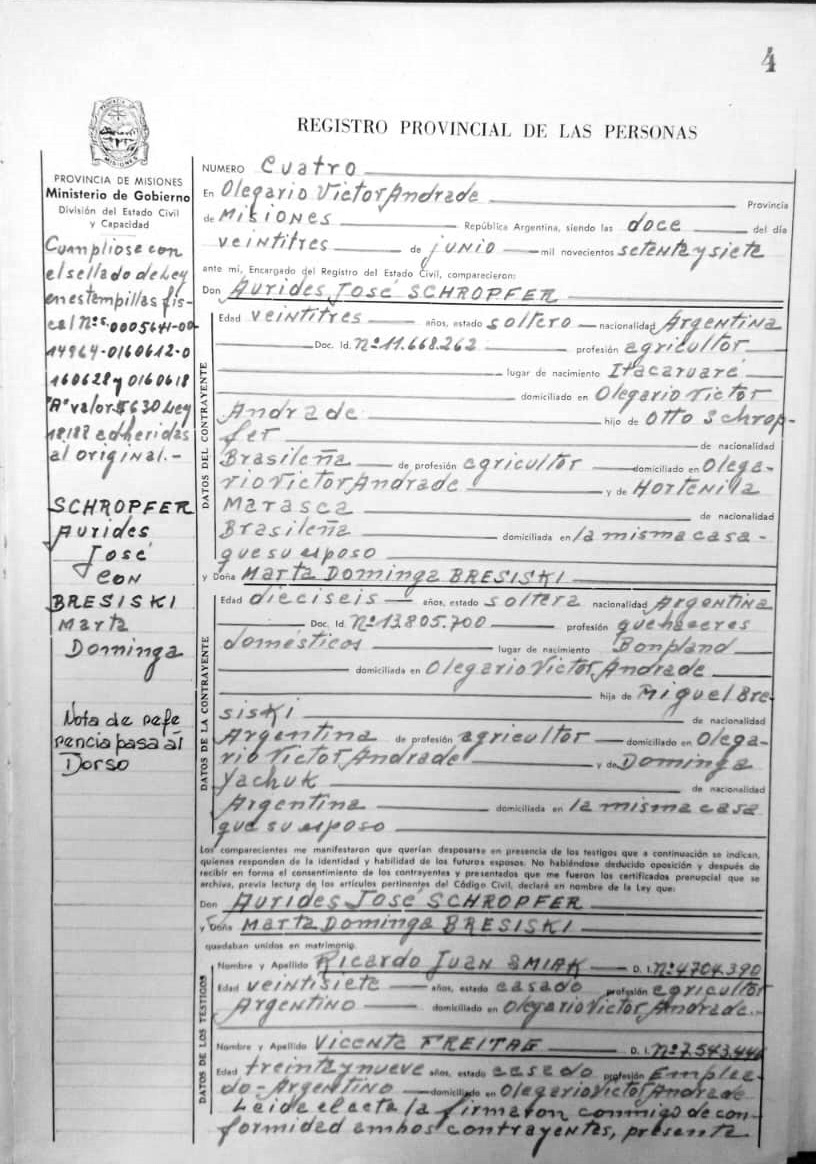 4
REGISTRO PROVINCIAL DE LAS PERSONAS
PROVINCIA DE MISIONES
Ministerio de Gobierno
División del Estado Civil
y Capacidad
Cumpliose con
el sellado de Ley
en estampillas fis-
cal Nos. 0005641-00
14964-0160612-0
160628 y 0160618
"A" valor $ 630 Ley
adheridas
al original.-
SCHROPFER
Aurides
José
con
BRESISKI
Marta
Dominga
Nota de refe
rencia pasa al
Dorso
NUMERO Cuatro
En Olegario Victor Andrade Provincia
de Misiones República Argentina, siendo las doce del día
veintitres de junio mil novecientos setenta y siete
ante mi, Encargado del Registro del Estado Civil, comparecieron:
Don Aurides José SCHROPFER
DATOS DEL CONTRAYENTE
Edad veintitres años, estado soltero nacionalidad Argentina
Doc. Id. Nº 11.668.262 profesión agricultor
lugar de nacimiento Itacaruaré
domiciliado en Olegario Victor
Andrade hijo de Otto Schrop-
fer de nacionalidad
Brasileña de profesión agricultor domiciliado en Olega-
rio Victor Andrade y de Hortenila
Marasca de nacionalidad
Brasileña domiciliada en la misma casa-
que su esposo
y Doña Marta Dominga BRESISKI
DATOS DE LA CONTRAYENTE
Edad dieciseis años, estado soltera nacionalidad Argentina
Doc. Id. Nº 13.805.700 profesión quehaceres
domésticos lugar de nacimiento Bonpland
domiciliada en Olegario Victor Andrade
hija de Miguel Bre
siski de nacionalidad
Argentina de profesión agricultor domiciliado en Olega-
rio Victor Andrade y de Dominga
Yachuk de nacionalidad
Argentina domiciliada en la misma casa
que su esposo
Los comparecientes me manifestaron que querían desposarse en presencia de los testigos que a continuación se indican,
quienes responden de la identidad y habilidad de los futuros esposos. No habiéndose deducido oposición y después de
recibir en forma el consentimiento de los contrayentes y presentados que me fueron los certificados prenupcial que se
archiva, previa lectura de los artículos pertinentes del Código Civil, declaré en nombre de la Ley que:
Don Aurides José SCHROPFER
y Doña Marta Dominga BRESISKI
quedaban unidos en matrimonio.
DATOS DE LOS TESTIGOS
Nombre y Apellido Ricardo Juan SMIAK D. I. Nº 4704.390
Edad veintisiete años, estado casado profesión agricultor
Argentino domiciliado en Olegario Victor Andrade.-
Nombre y Apellido Vicente FREITAG D. I. Nº 7.543.446
Edad treinta y nueve años, estado casado profesión Emplea-
do-Argentino domiciliado en Olegario Victor Andrade
Leida el acta la firmaron conmigo de con-
formidad ambos contrayentes, presente